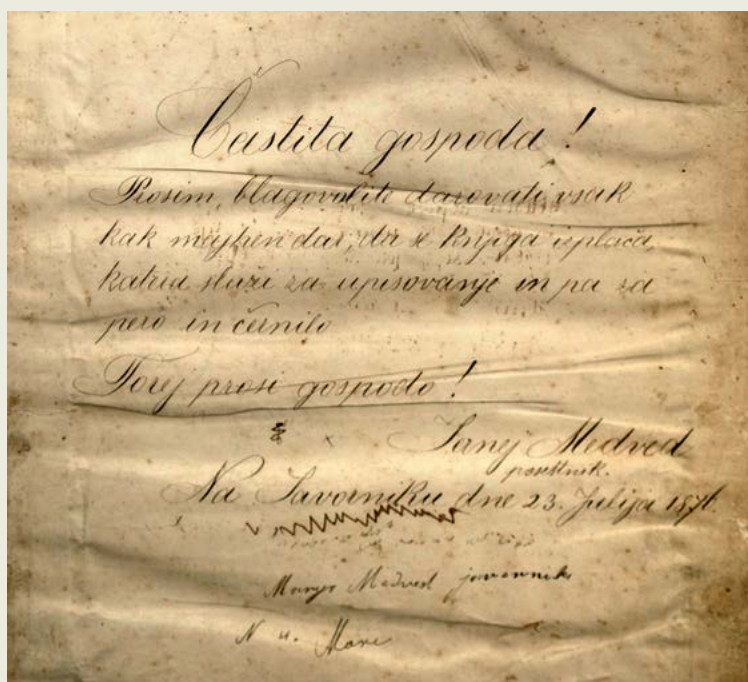 Častita gospoda!
Prosim, blagovolite darovati vsak
kak majhen dar, da se knjiga isplača,
katera služi za upisovanje in pa za
pero in černilo
Torej prosi gospodo!
Janej Medved
posestnik.
Na Javorniku dne 23. Julija 187
Medved
N u. Mare